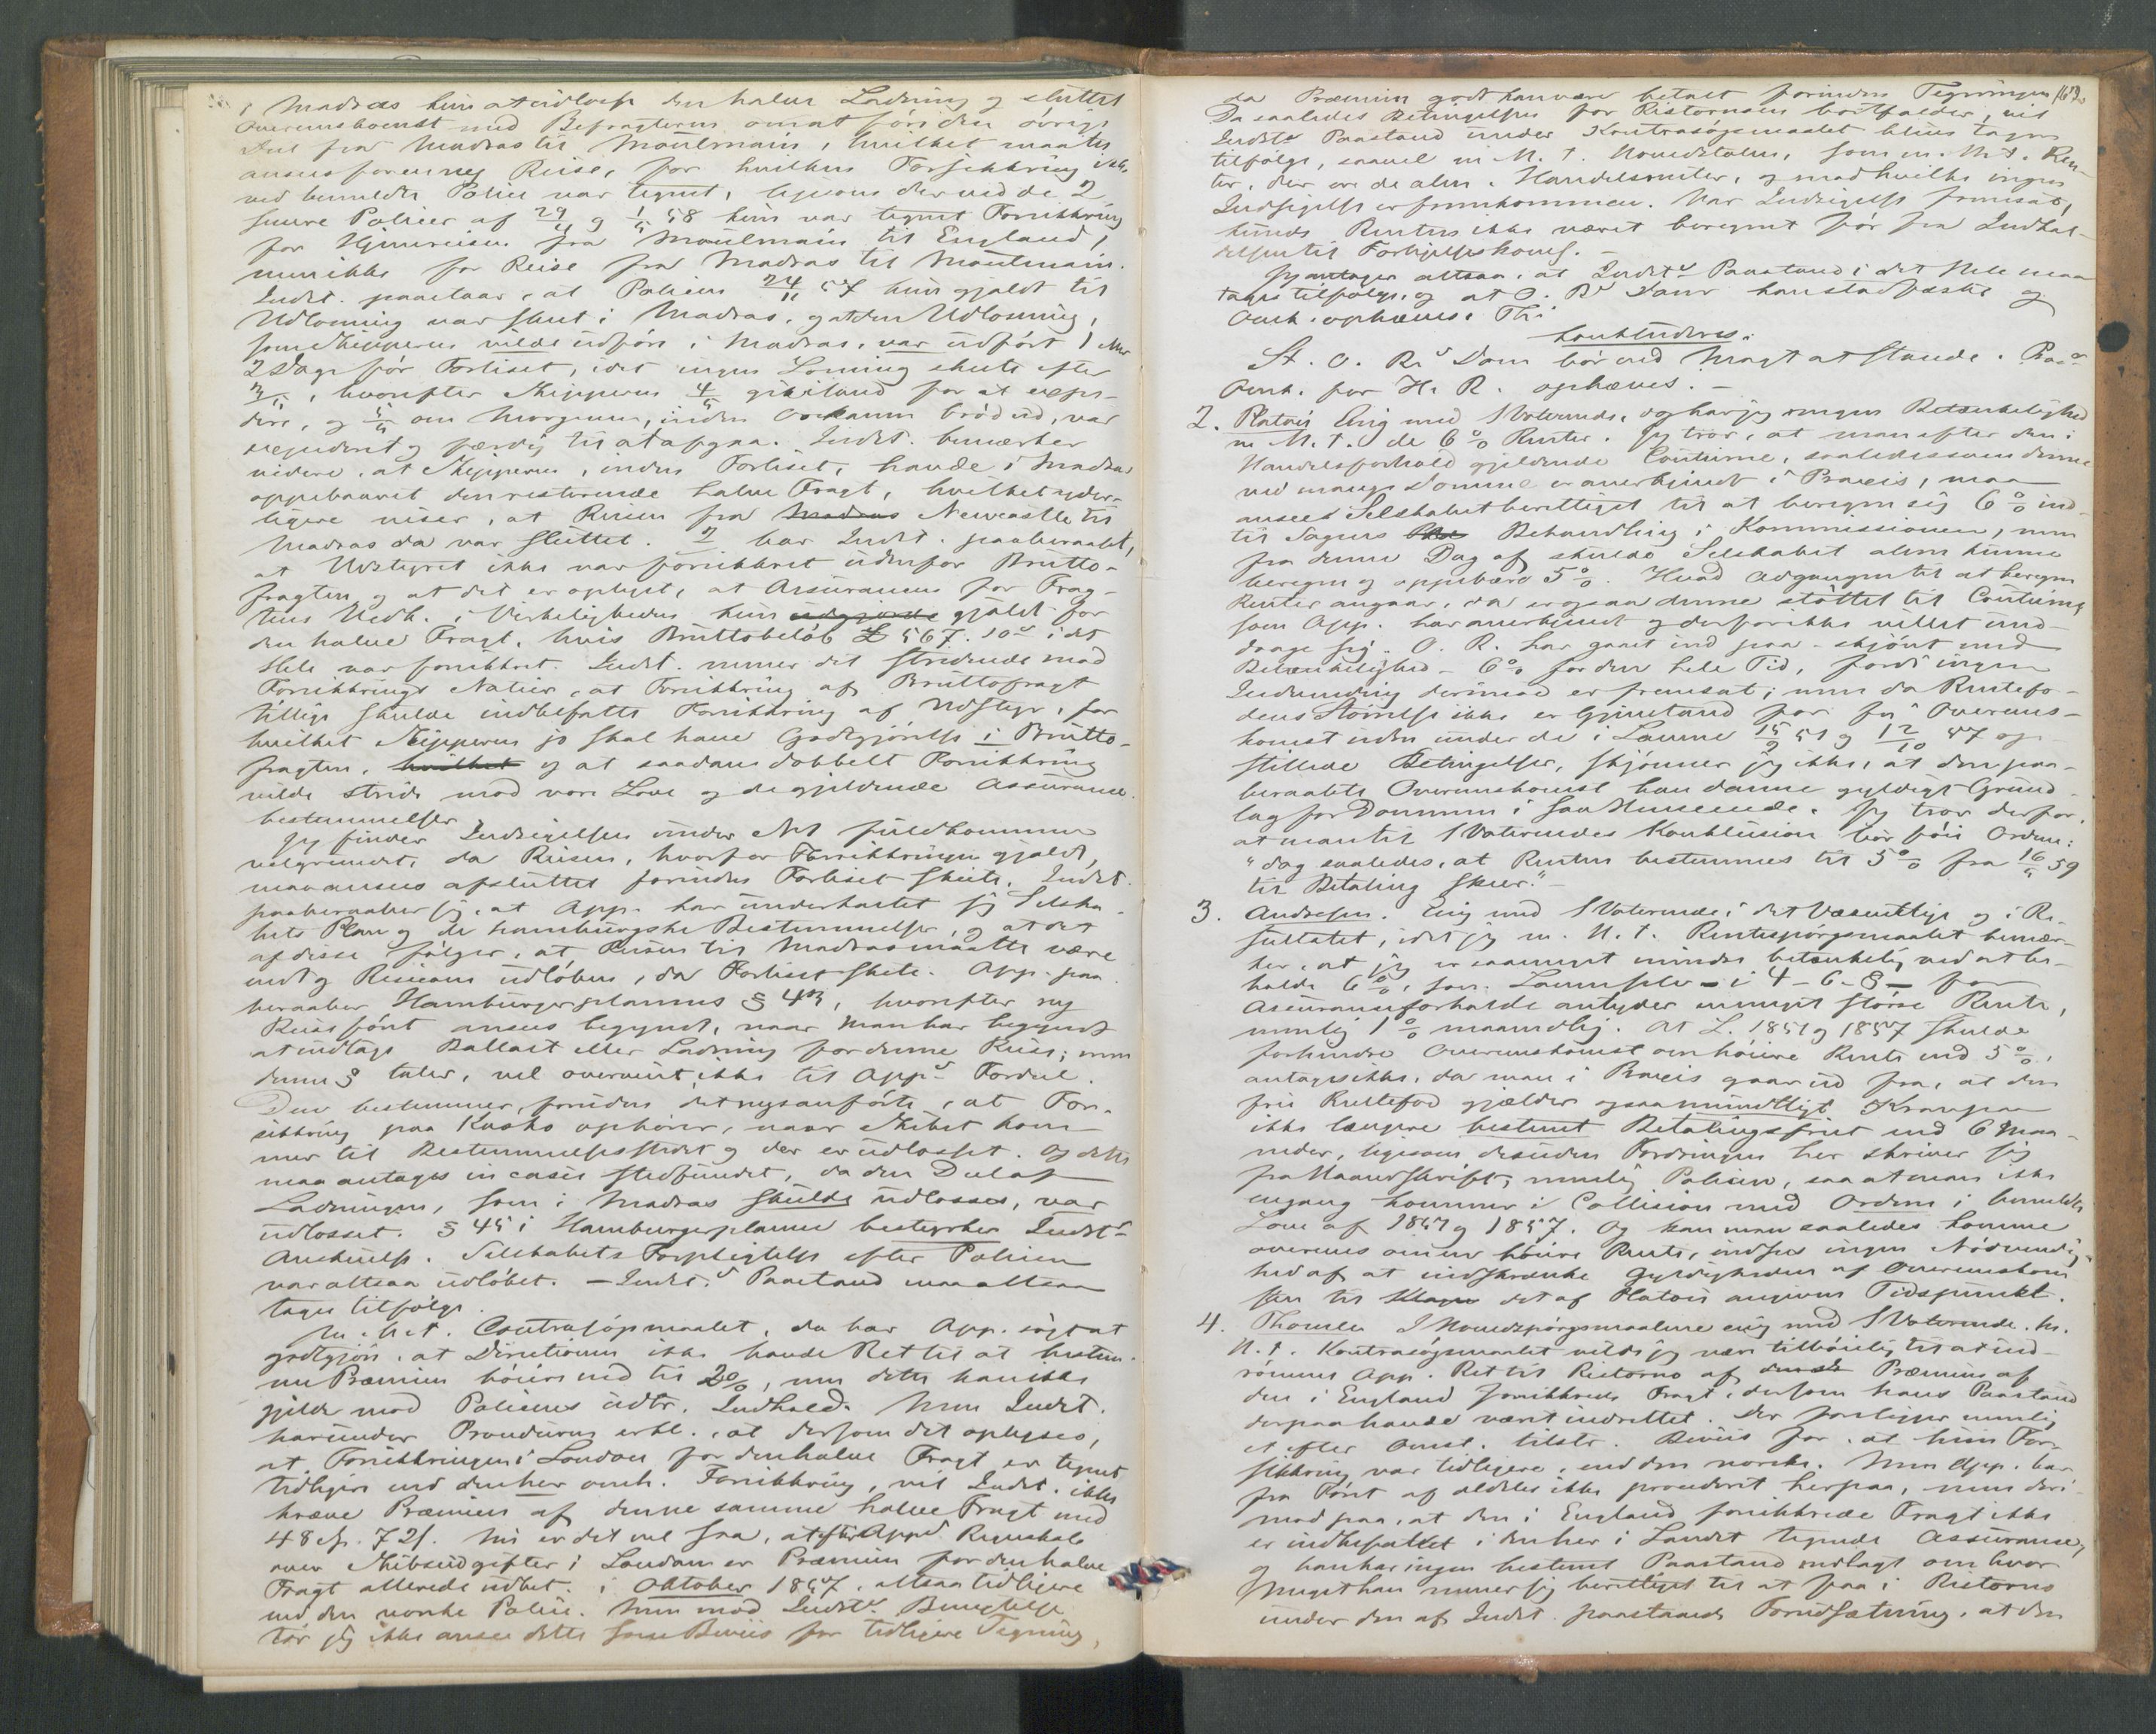 i Madras kun at udlosse den halve Ladning og sluttet
Overenskomst med Befragteren om at føre den øvrige
Deel fra Madras til Moulmain, hvilket maatte
ansees som en ny Reise, for hvilken Forsikkring ikke
ved bemeldte Police var tegnet, ligesom der ved de 2
senere Policer af og 58 kun var tegnet Forsikkring
for Hjemreisen fra Moulmain til England,
men ikke for Reise fra Madras til Moulmain.
Indst. paastaar, at Policen 24/11 57 kun gjaldt til
Udlosning var skeet i Madras, og at den Udlosning,
som Skipperen vilde udføre i Madras, var udført 1 eller
2 Dage før Forliset, idet ingen Losning skete efter
3/5, hvorefter Skipperen 4/5 gik iland for at expe-
dere, og 5/5 om Morgenen, inden Orkanen brød ud, var
expederet og færdig til at afgaa. Indst. bemærker
videre, at Skipperen, inden Forliset, havde i Madras
oppebaaret den resterende halve Fragt, hvilket yder-
ligere viser, at Reisen fra Madras Newcastle til
Madras da var sluttet. 2 har Indst. paaberaabt,
at Udstyret ikke var forsikkret udenfor Brutto-
fragten og at det er oplyst, at Assurancen for Frag-
tens Vedk. i Virkeligheden kun udgjorde gjaldt for
den halve Fragt, hvis Bruttobeløb £ 567. 10 i det
Hele var forsikkret. Indst. mener det stridende mod
Forsikkrings Natur, at Forsikkring af Bruttofragt
tillige skulde indbefatte Forsikkring af Udstyr, for
hvilket Skipperen jo skal have Godtgjørelse i Brutto-
fragten, hvilket og at saadan dobbelt Forsikkring
vilde stride mod vore Love og de gjeldende Assurance-
bestemmelser.
Jeg finder Indsigelsen under No 1 fuldkommen
velgrundet, da Reisen, hvorfor Forsikkringen gjaldt,
maa ansees afsluttet forinden Forliset skete. Indst.
paaberaaber sig, at App. har underkastet sig Selska-
bets Plan og de hamburgske Bestemmelser, og at det
af disse følger, at Reisen til Madras maatte være
endt og Risicoen udløben, da Forliset skete. App. paa-
beraaber Hamburgerplanens § 43, hvorefter ny
Reise først ansees begyndt, naar man har begyndt
at indtage Ballast eller Ladning for denne Reise; men
denne § taler, vel overveiet, ikke til Apps Fordeel.
Den bestemmer, foruden det nysanførte, at For-
sikkring paa Kasko ophører, naar Skibet kom-
mer til Bestemmelsesstedet og der er udlosset. Og dette
maa antages in casu stedfundet, da den Deel af
Ladningen, som i Madras skulde udlosses, var
udlosset. § 45 i Hamburgerplanen bestyrker Indsts
Anskuelse. Selskabets Forpligtelse efter Policen
var altsaa udløbet. – Indsts Paastand maa altsaa
tages tilfølge.
M. H. t. Contrasøgsmaalet, da har App. søgt at
godtgjøre, at Directionen ikke havde Ret til at bestem-
me Præmien høiere end til 2%, men dette kan ikke
gjelde mod Policens udtr. Indhold. Men Indst.
har under Proceduren erkl., at dersom det oplyses,
at Forsikkringen i London for den halve Fragt er tegnet
tidligere end den her omh. Forsikkring, vil Indst. ikke
kræve Præmien af denne samme halve Fragt med
48 Sp. 72 s. Nu er det vel saa, at efter Apps Regnskab
over Skibsudgifter i London er Præmien for den halve
Fragt allerede udbet. i Oktober 1857, altsaa tidligere
end den norske Police. Men mod Indsts Benegtelse
tør jeg ikke ansee dette som Beviis for tidligere Tegning,
da Præmien godt kan være betalt forinden Tegningen 163.
Da saaledes Betingelsen for Ristornoen bortfalder, vil
Indsts Paastand under Kontrasøgsmaalet blive tagen
tilfølge, saavel m. H. t. Hovedstolen, som m. H. t. Ren-
ter, der ere de alm. Handelsrenter, og mod hvilke ingen
Indsigelse er fremkommen. Var Indsigelse fremsat,
kunde Renten ikke været beregnet før fra Indkal-
delsen til Forligelseskomm. –
Jeg antager altsaa, at Indsts Paastand i det Hele maa
tages tilfølge, og at O. Rs Dom kan stadfæstes og
Omk. ophæves. Thi
konkluderes:
St. O. Rs Dom bør ved Magt at stande. Proc.
Omk. for H. R. ophæves. –
2. Platou Enig med 1 Voterende, dog har jeg nogen Betænkelighed
m. H. t. de 6% Renter. Jeg tror, at man efter den i
Handelsforhold gjeldende Coutume, saaledes som denne
ved mange Domme er anerkjendt i Praxis, maa
ansees Selskabet berettiget til at beregne sig 6% ind-
til Sagens Behandling i Kommissionen, men
fra denne Dag af skulde Selskabet alene kunne
beregne og oppebære 5%. Hvad Adgangen til at beregne
Renter angaar, da er ogsaa denne støttet til Coutume,
som App. har anerkjendt og derfor ikke villet und-
drage sig. O. R. har gaaet ind paa – skjønt med
Betænkelighed – 6% for den hele Tid, fordi ingen
Indvending derimod er fremsat; men da Rentefo-
dens Størrelse ikke er Gjenstand for fri Overens-
komst uden under de i Lovene 15/9 51 og 12/10 57 op-
stillede Betingelser, skjønner jeg ikke, at den paa-
beraabte Overenskomst kan danne gyldigt Grund-
lag for Dommen i saa Henseende. Jeg tror derfor,
at man til 1 Voterendes Konklusion bør føie Ordene:
"dog saaledes, at Renten bestemmes til 5% fra 16/5 59
til Betaling skeer." –
3. Andresen. Enig med 1 Voterende i det Væsentlige og i Re-
sultatet, idet jeg m. H. t. Rentespørgsmaalet bemær-
ker, at jeg er saameget mindre betænkelig ved at be-
holde 6%, som Lovens – i 4-6-8 – for
Assuranceforholde antyder en meget større Rente,
nemlig 1% maanedlig. At L. 1851 og 1857 skulde
forhindre Overenskomst om høiere Rente end 5%,
antages ikke, da man i Praxis gaar ud fra, at den
frie Rentefod gjælder ogsaa mundtligt Krav paa
ikke længere bestemt Betalingsfrist end 6 Maa-
neder, ligesom desuden Fordringen her skriver sig
fra Haandskrift, nemlig Policen, saa at man ikke
engang kommer i Collision med Ordene i bemeldte
Love af 1851 og 1857. Og kan man saaledes komme
overeens om en høiere Rente, indsees ingen Nødvendig-
hed af at indskrænke Gyldigheden af Overenskom-
sten til det af Platou angivne Tidspunkt.
4. Thomle I Hovedspørgsmaalene enig med 1 Voterende. M.
H. t. Kontrasøgsmaalet vilde jeg være tilbøielig til at ind-
rømme App. Ret til Ristorno af Præmien af
den i England forsikkrede Fragt, dersom hans Paastand
derpaa havde været indrettet. Der foreligger nemlig
et efter Omst. tilstr. Beviis for, at hiin For-
sikkring var tidligere, end den norske. Men App. har
fra Først af aldeles ikke procederet herpaa, men der-
mod paa, at den i England forsikkrede Fragt ikke
er indbefattet i den her i Landet tegnede Assurance,
og han har ingen bestemt Paastand nedlagt om hvor
meget han mener sig berettiget til at faa i Ristorno
under den af Indst. paastaaede Forudsætning, at den